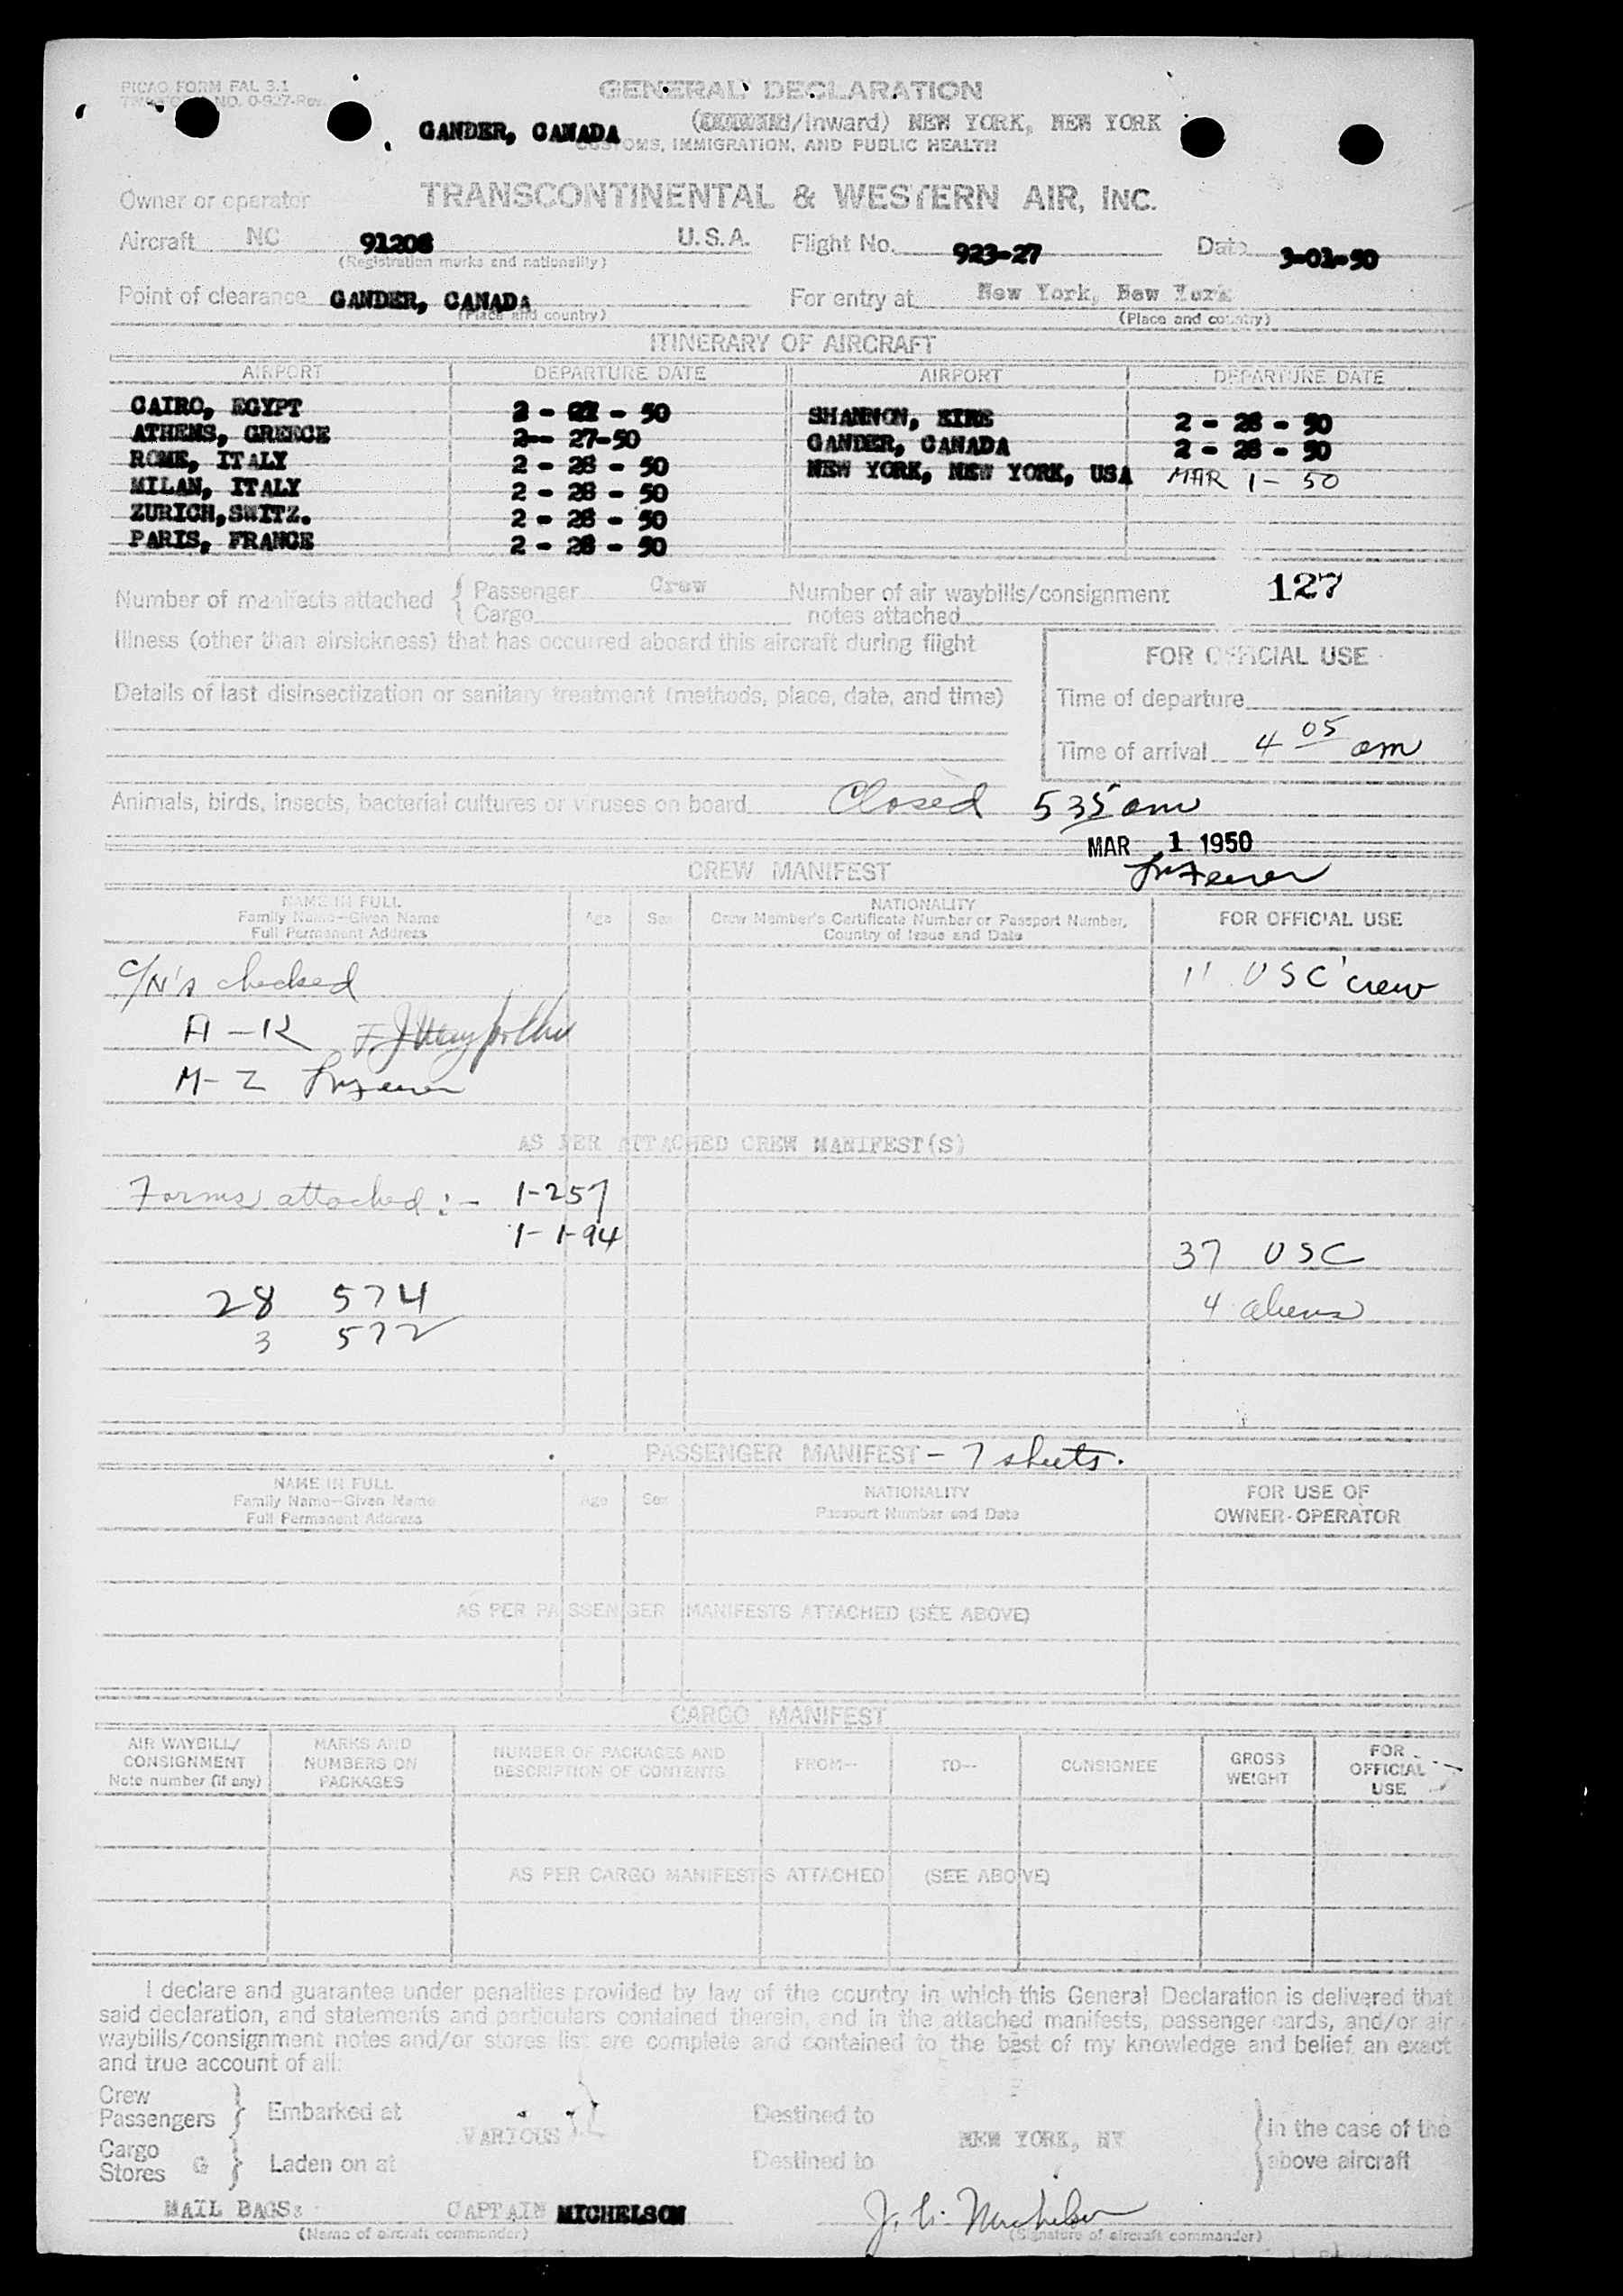 PICAO FORM FAL 3.1
GENERAL DECLARATION
GANDER, CANADA /Inward) NEW YORK, NEW YORK
CUSTOMS, IMMIGRATION, AND PUBLIC HEALTH
Owner or operator TRANSCONTINENTAL & WESTERN AIR, INC.
Aircraft NC 91206 U.S.A. Flight No. 923-27 Date 3-01-50
(Registration marks and nationality)
Point of clearance GANDER, CANADA For entry at New York, New York
(Place and country) (Place and country)
ITINERARY OF AIRCRAFT
AIRPORT DEPARTURE DATE AIRPORT DEPARTURE DATE
CAIRO, EGYPT 2 - 27 - 50 SHANNON, EIRE 2 - 28 - 50
ATHENS, GREECE 2-- 27-50 GANDER, CANADA 2 - 28 - 50
ROME, ITALY 2 - 28 - 50 NEW YORK, NEW YORK, USA MAR 1 - 50
MILAN, ITALY 2 - 28 - 50
ZURICH,SWITZ. 2 - 28 - 50
PARIS, FRANCE 2 - 28 - 50
127
Number of manifests attached { Passenger Crew Number of air waybills/consignment
Cargo notes attached
Illness (other than airsickness) that has occurred aboard this aircraft during flight
FOR OFFICIAL USE
Details of last disinsectization or sanitary treatment (methods, place, date, and time)
Time of departure
Time of arrival 4 05 am
Animals, birds, insects, bacterial cultures or viruses on board Closed 535 am
MAR 1 1950
CREW MANIFEST
NAME IN FULL
Family Name—Given Name
Full Permanent Address
Age Sex
NATIONALITY
Crew Member's Certificate Number or Passport Number,
Country of Issue and Date
FOR OFFICIAL USE
C/N's checked 11 USC crew
A - K
M - Z
AS PER ATTACHED CREW MANIFEST(S)
Forms attached :- 1-257
1-I-94
37 USC
28 574 4 aliens
3 572
PASSENGER MANIFEST - 7 sheets.
NAME IN FULL
Family Name—Given Name
Full Permanent Address
Age Sex
NATIONALITY
Passport Number and Date
FOR USE OF
OWNER-OPERATOR
AS PER PASSENGER MANIFESTS ATTACHED (SEE ABOVE)
CARGO MANIFEST
AIR WAYBILL/
CONSIGNMENT
Note number (if any)
MARKS AND
NUMBERS ON
PACKAGES
NUMBER OF PACKAGES AND
DESCRIPTION OF CONTENTS
FROM— TO— CONSIGNEE
GROSS
WEIGHT
FOR
OFFICIAL
USE
AS PER CARGO MANIFESTS ATTACHED (SEE ABOVE)
I declare and guarantee under penalties provided by law of the country in which this General Declaration is delivered that
said declaration, and statements and particulars contained therein, and in the attached manifests, passenger cards, and/or air
waybills/consignment notes and/or stores list are complete and contained to the best of my knowledge and belief an exact
and true account of all:
Crew
Passengers } Embarked at VARIOUS Destined to NEW YORK, NY } in the case of the
Cargo
Stores G } Laden on at Destined to above aircraft
MAIL BAGS: CAPTAIN MICHELSON
(Name of aircraft commander) (Signature of aircraft commander)